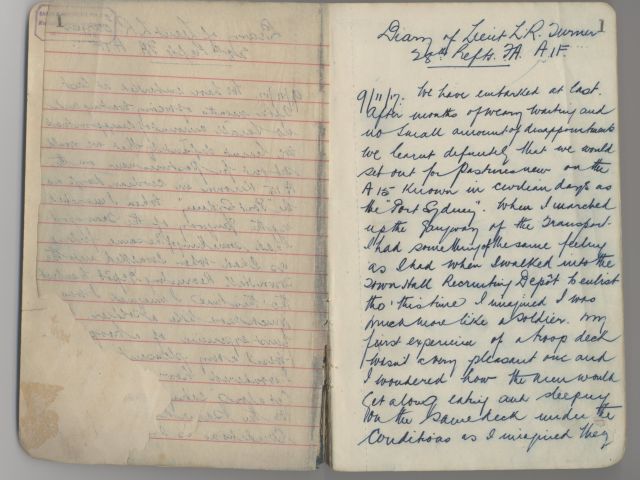 1
Diary of Lieut L.R. Turner
28th Refts. FA. A.I.F.
9/11/17. We have embarked at last.
After months of weary waiting and
no small amount of disappointments
we learnt definitely that we would
set out for pastures new on the
A15 known in civilian days as
the "Port Sydney". When I marched
up the gangway of the Transport
I had something of the same feeling
as I had when I walked into the
Town Hall Recruiting Depôt to enlist
tho' this time I imagined I was
much more like a soldier. My
first experience of a troop deck
wasn't a very pleasant one and
I wondered how the men would
get along eating and sleeping
on the same deck under the
conditions as I imagined they